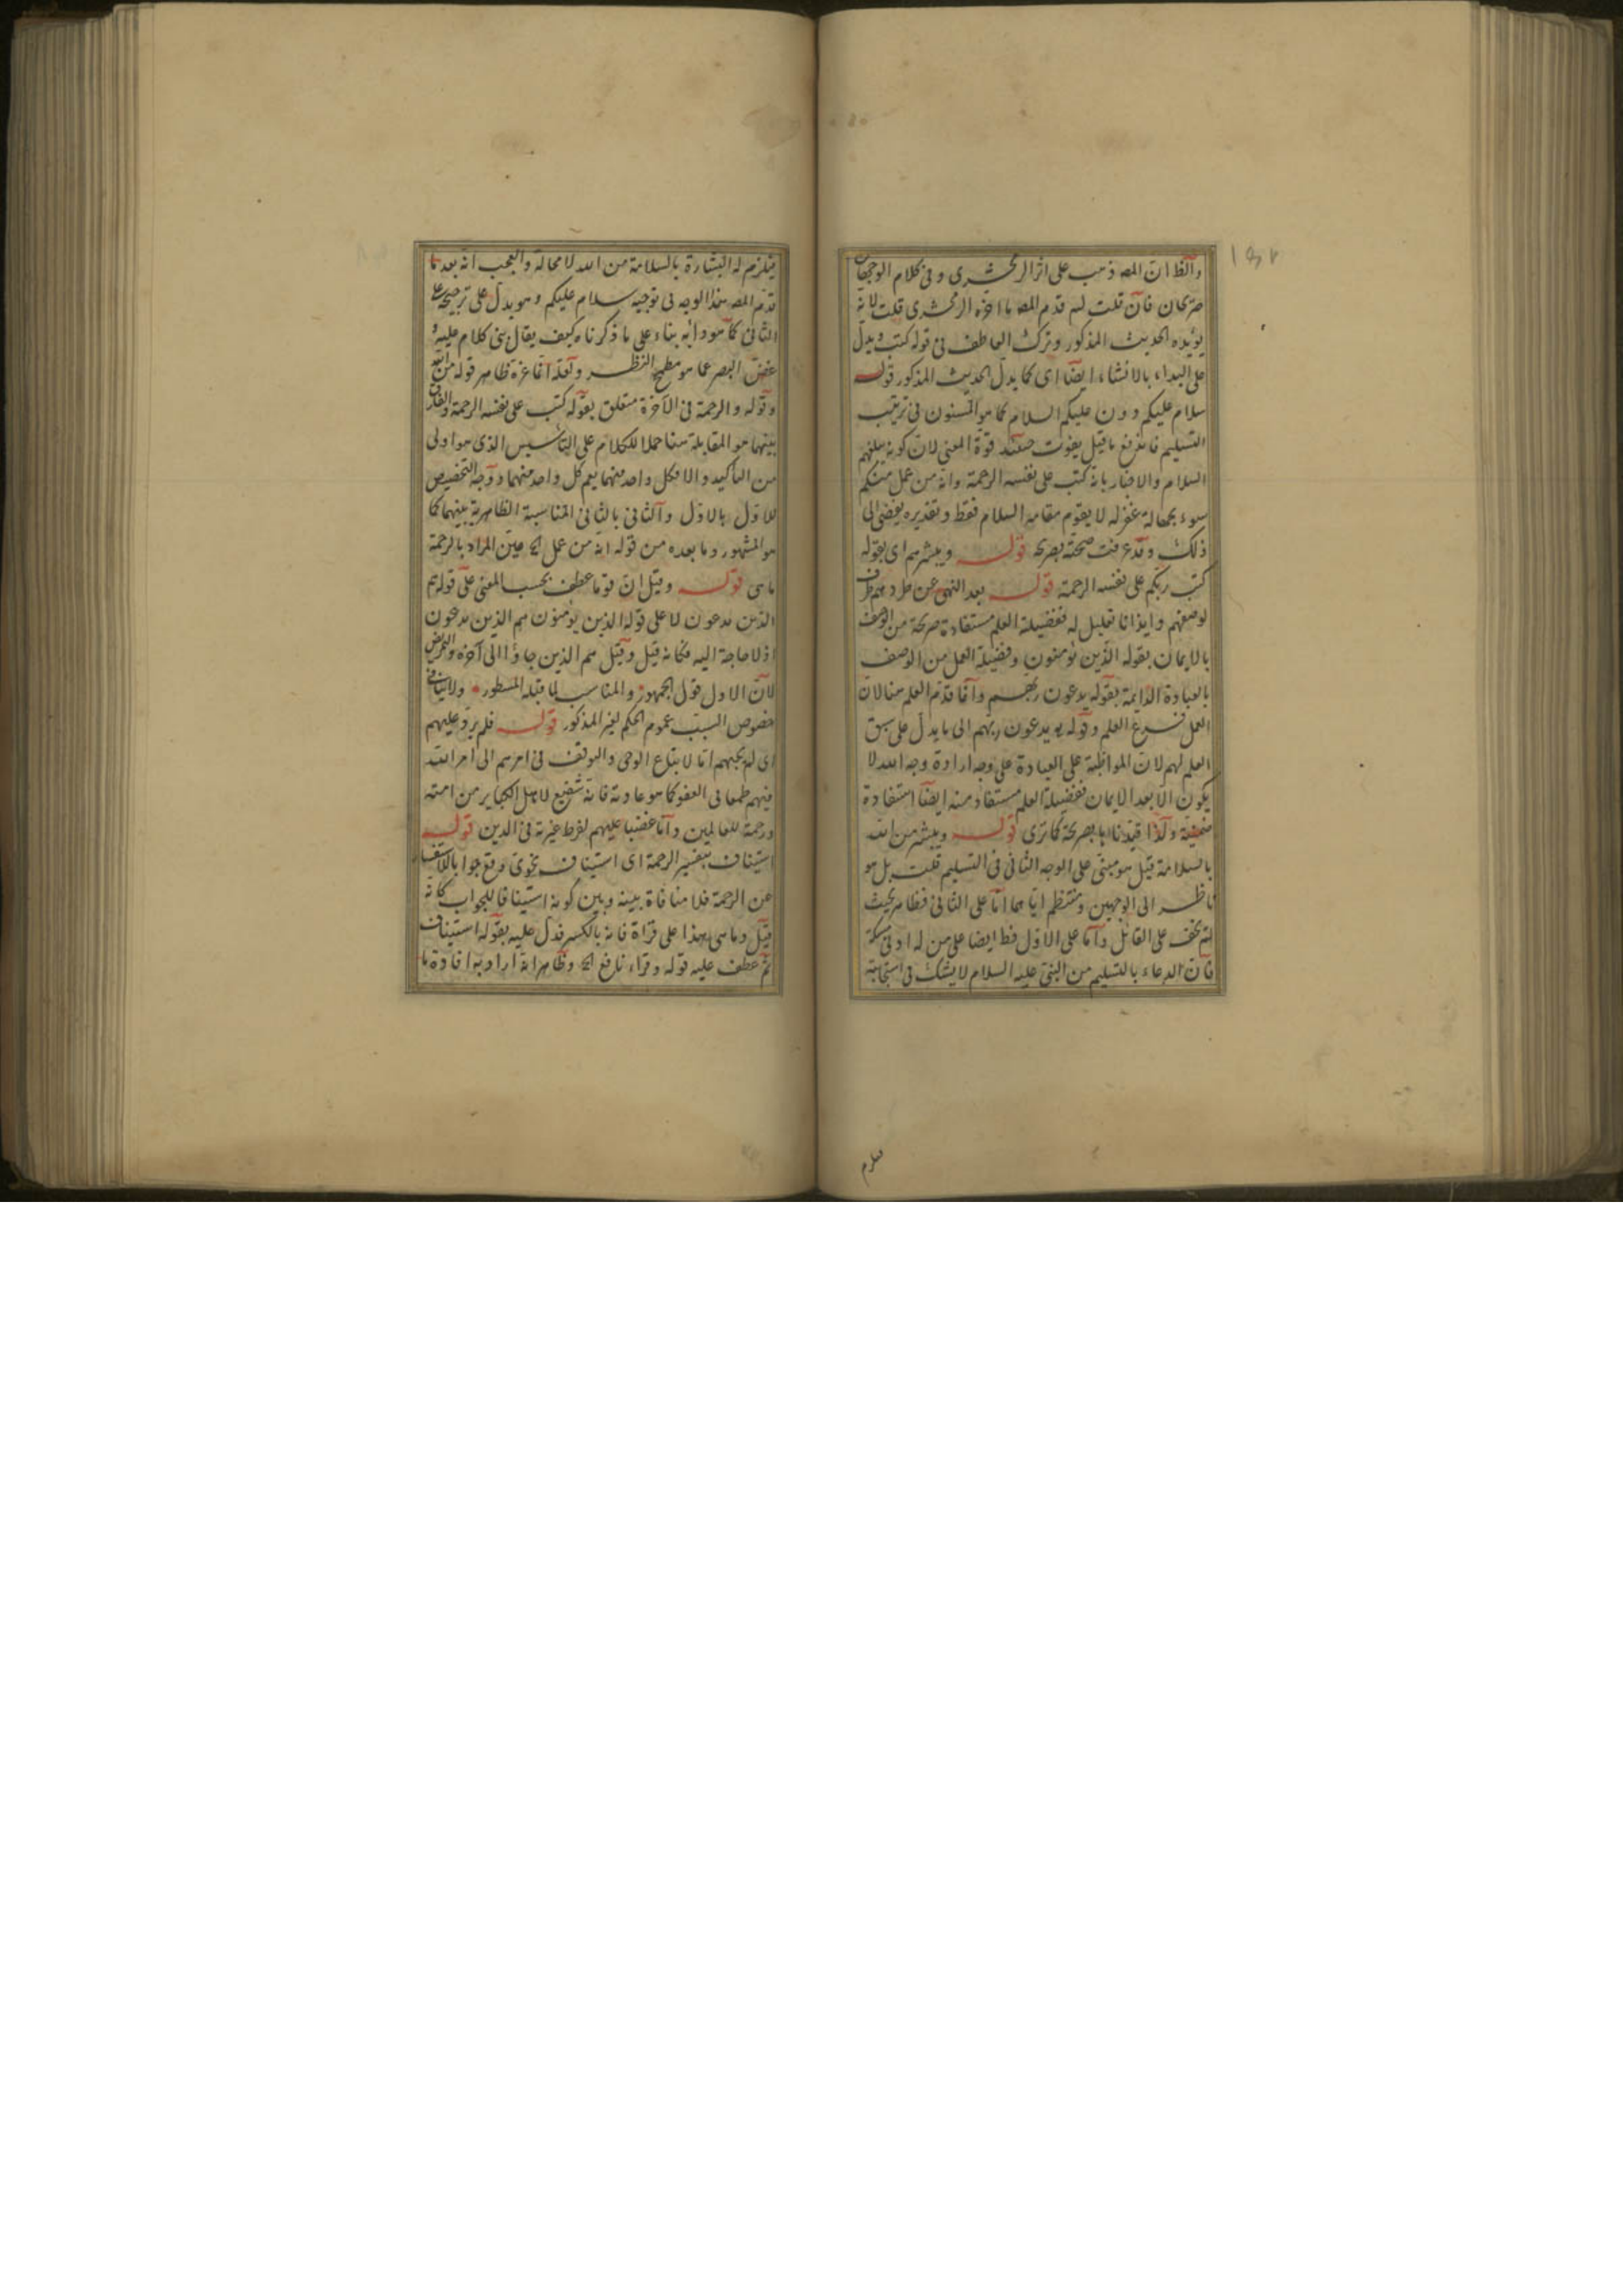 ١٥٢
والظ ان المصـ ذهب على اثر الزمخشرى وفى كلام الوجهان
صريحان فان قلت لم قدم المصـ ما اخره الزمخشرى قلت لانه
يؤيده الحديث المذكور وترك العاطف فى قوله كتب ويدل
على البداء بالانشاء ايضا اى كما يدل الحديث المذكور قوله
سلام عليكم دون عليكم السلام كما هو المسنون فى ترتيب
التسليم فاندفع ما قيل يفوت قوة المعنى لان كونه يبلغهم
السلام والاخبار بانه كتب على نفسه الرحمة وانه من عمل منكم
سوء بجهالة غفر له لا يقوم مقامه السلام فقط وتقديره يفضى الى
ذلك وقد عرفت صحته بصريحه قوله ويبشرهم اى بقوله
كتب ربكم على نفسه الرحمة قوله بعد النهى عن طردهم ظرف
لوصفهم وايذانا تعليل له ففضيلة العلم مستفادة صريحة من الوصف
بالايمان بقوله الذين يؤمنون وفضيلة العمل من الوصف
بالعبادة الدايمة بقوله يدعون ربهم وانما قدم العلم هنا لان
العمل فرع العلم وقوله يدعون ربهم الى ما يدل على سبق
العلم لهم لان المواظبة على العبادة على وجه ارادة وجه الله لا
يكون الا بعد الايمان ففضيلة العلم مستفاد منه ايضا استفادة
ضمنية ولذا قيدناها بصريحة كما ترى قوله ويبشر من الله
بالسلامة قيل هو مبنى على الوجه الثانى فى التسليم قلت بل هو
ناظر الى الوجهين ومنتظم اياهما اما على الثانى فظاهر بحيث
لم يخف على القائل واما على الاول فظ ايضا على من له ادنى مسكة
فان الدعاء بالتسليم من النبى عليه السلام لا يشك فى استجابته
فيلزم
فيلزم له البشارة بالسلامة من الله لا محالة والعجب انه بعد ما
قدم المصـ هذا الوجه فى توجيه سلام عليكم وهو يدل على ترجيحه على
الثانى كما هو دابه بناء على ما ذكرناه كيف يقال بنى كلام عليه و
غض البصر عما هو مطمح النظر ولعله انما غره ظاهر قوله من الله
وقوله والرحمة فى الآخرة متعلق بقوله كتب على نفسه الرحمة والفارق
بينهما هو المقابلة هنا حملا للكلام على التاسيس الذى هو اولى
من التاكيد والا فكل واحد منهما يعم كل واحد منهما ووجه التخصيص
للاول بالاول والثانى بالثانى المناسبة الظاهرية بينهما كما
هو المشهور وما بعده من قوله انه من عمل الخ عين المراد بالرحمة
ماسى قوله وقيل ان قوما عطف بحسب المعنى على قوله هم
الذين يدعون لا على قوله الذين يؤمنون هم الذين يدعون
اذ لا حاجة اليه فكانه قيل وقيل هم الذين جاؤا الى آخره والتمريض
لان الاول قول الجمهور والمناسب لما قبله المسطور ولا ينافى
خصوص السبب عموم الحكم لغير المذكور قوله فلم يرد عليهم
اى لم يجبهم اما لاتباع الوحى والتوقف فى امرهم الى امر الله
فيهم طمعا فى العفو كما هو عادته فانه شفيع لاهل الكباير من امته
ورحمة للعالمين واما غضبا عليهم لفرط غيرته فى الدين قوله
استيناف بتفسير الرحمة اى استيناف نحوى وقع جوابا للاستفسار
عن الرحمة فلا منافاة بينه وبين كونه استينافا للجواب كانه
قيل وما هى هذا على قراة فانه بالكسر فدل عليه بقوله استيناف
ثم عطف عليه قوله وقراء نافع الخ وظاهره انه اراد به افادة ما